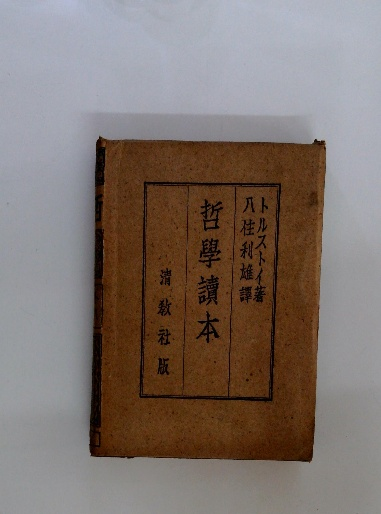 トルストイ著
八住利雄譯
哲學讀本
清教社版